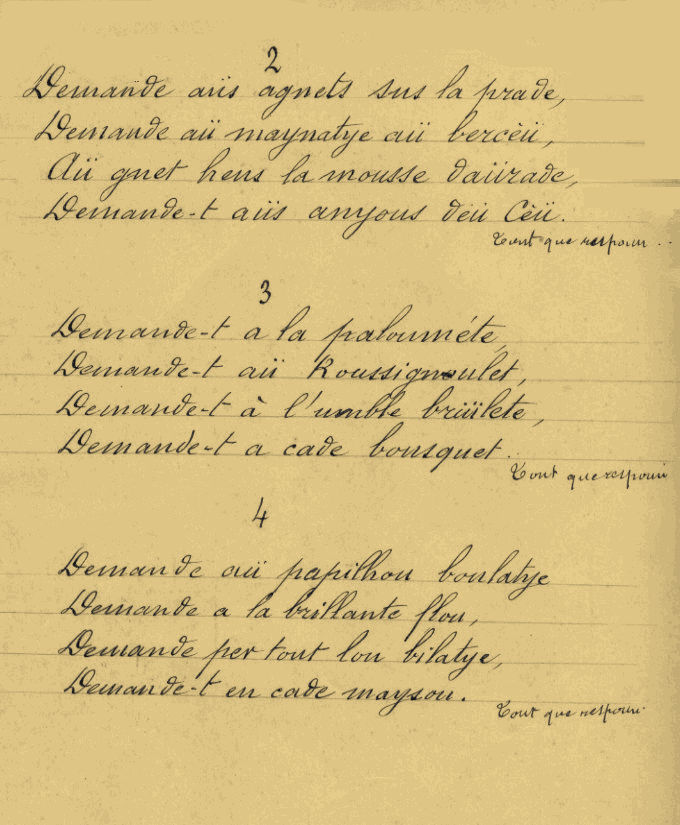 2
Demande aüs agnets sus la prade,
Demande aü maynatye aü bercèü,
Aü gnet hens la mousse daürade,
Demande-t aüs anyous dëu Cèü.
Tout que respoun ..
3
Demande-t a la palouméte,
Demande-t aü Roussignoulet,
Demande-t à l'umble brüülete,
Demande-t a cade bousquet.
Tout que respoun
4
Demande aü papilhou boulatye
Demande a la brillante flou,
Demande per tout lou bilatye,
Demande-t en cade maysou.
Tout que respoun.